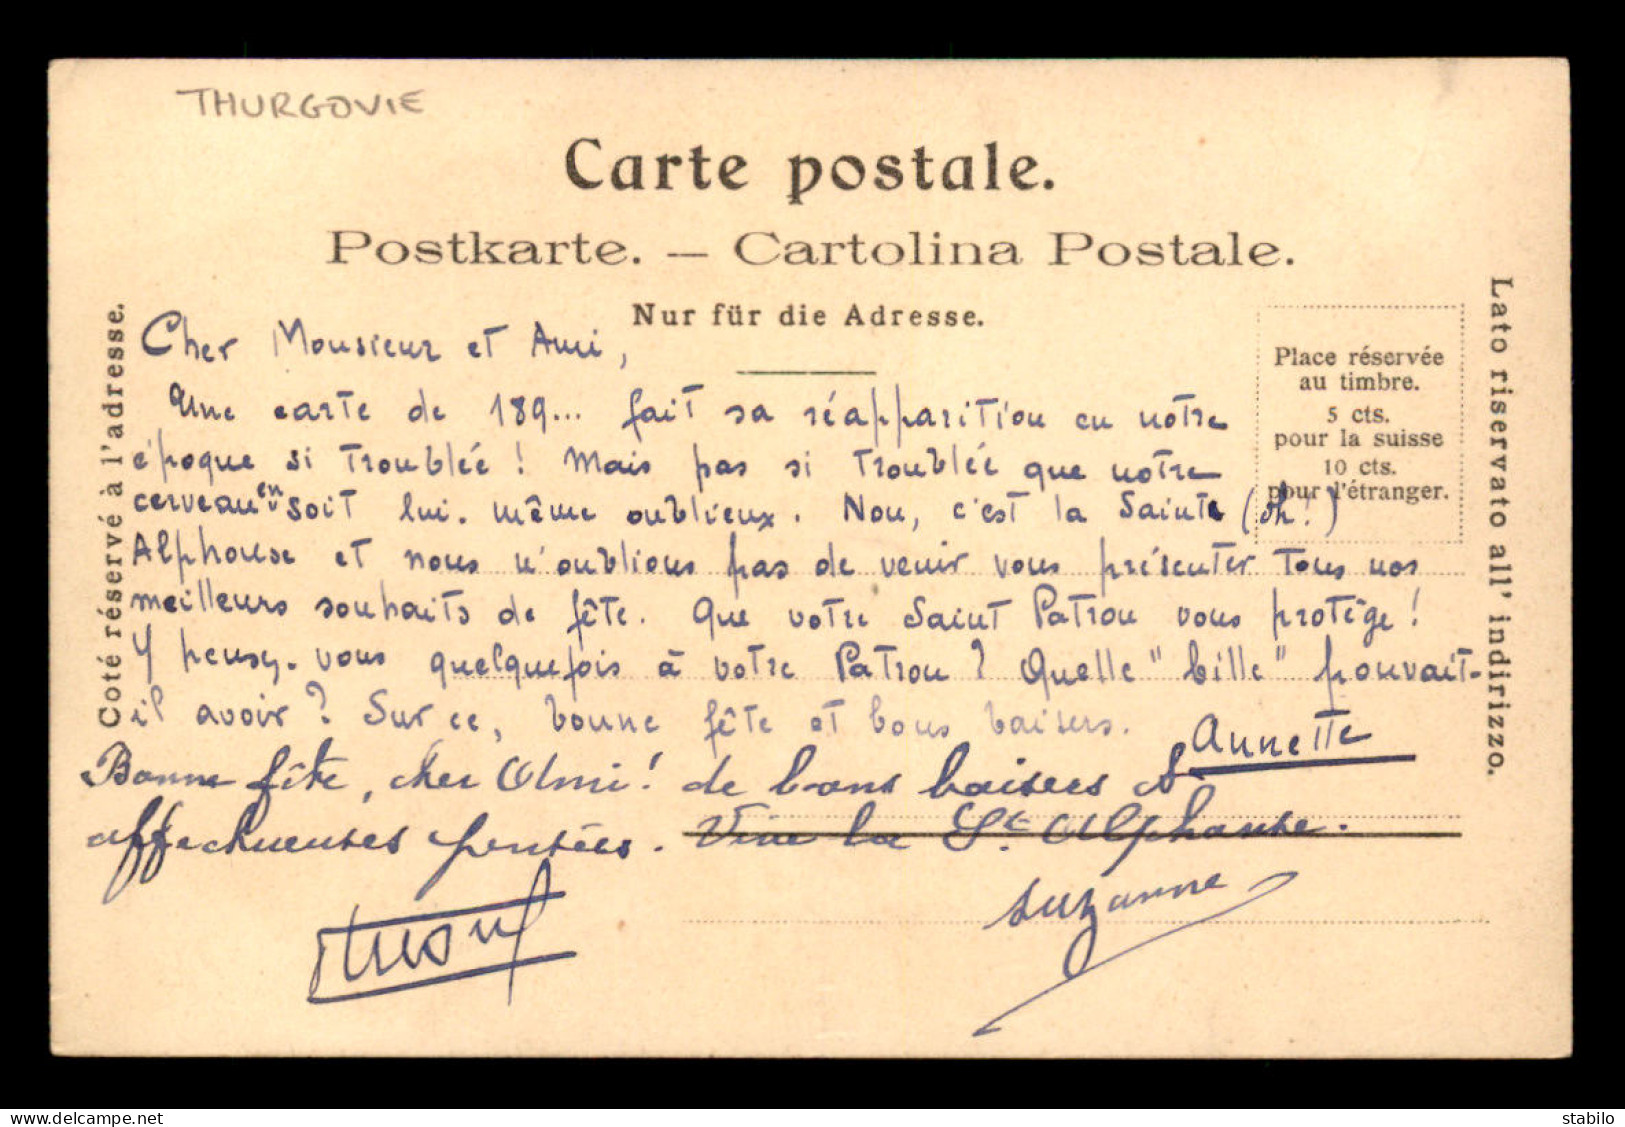 THURGOVIE
Carte postale.
Postkarte. — Cartolina Postale.
Nur für die Adresse.
Coté réservé à l'adresse.
Lato riservato all' indirizzo.
Place réservée
au timbre.
5 cts.
pour la suisse
10 cts.
pour l'étranger.
Cher Monsieur et Ami,
Une carte de 189... fait sa réapparition en notre
époque si troublée ! Mais pas si troublée que notre
cerveau en soit lui-même oublieux. Non, c'est la Sainte (oh !)
Alphonse et nous n'oublions pas de venir vous présenter tous nos
meilleurs souhaits de fête. Que votre Saint Patron vous protège !
Y pensez-vous quelquefois à votre Patron ? Quelle "bille" pouvait-
il avoir ? Sur ce, bonne fête et bons baisers.
Annette
Bonne fête, cher Ami ! de bons baisers et
affectueuses pensées. Vive la St Alphonse.
Suzanne